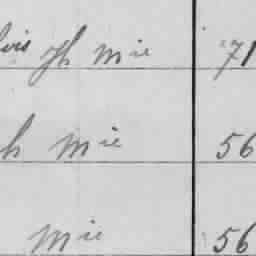 Jh Mie 71
h Mie 56
Mie 56